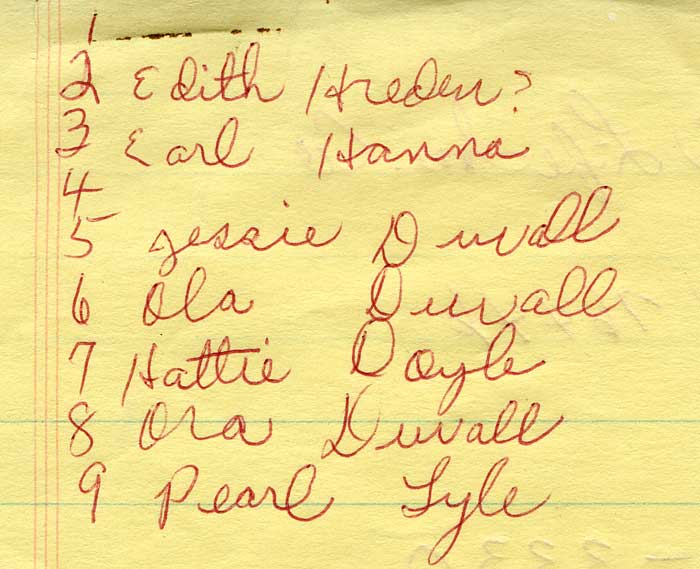 1
2 Edith Hreden?
3 Earl Hanna
4
5 Jessie Duvall
6 Ola Duvall
7 Hattie Doyle
8 Ora Duvall
9 Pearl Lyle